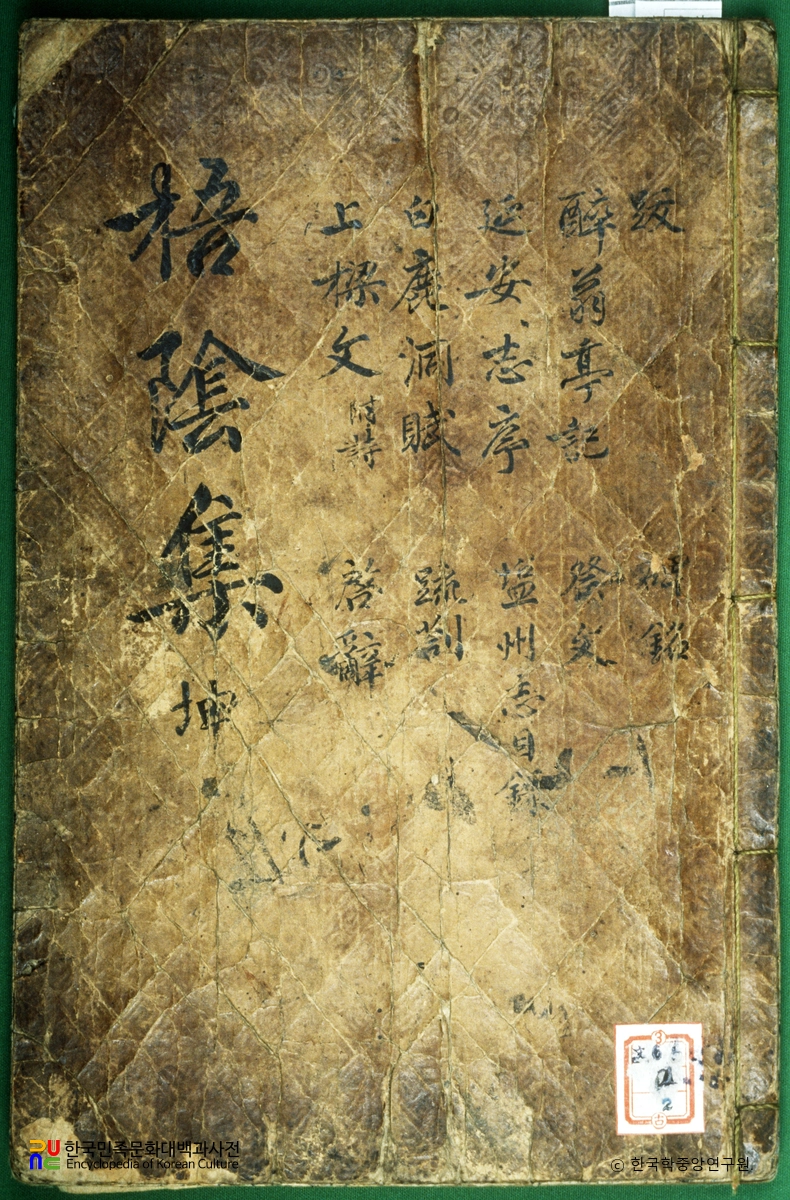 跋
碑銘
醉翁亭記
祭文
延安志序
塩州志目錄
白鹿洞賦
疏箚
上樑文 附詩
啓辭
梧陰集 坤
2
한국민족문화대백과사전
Encyclopedia of Korean Culture
© 한국학중앙연구원